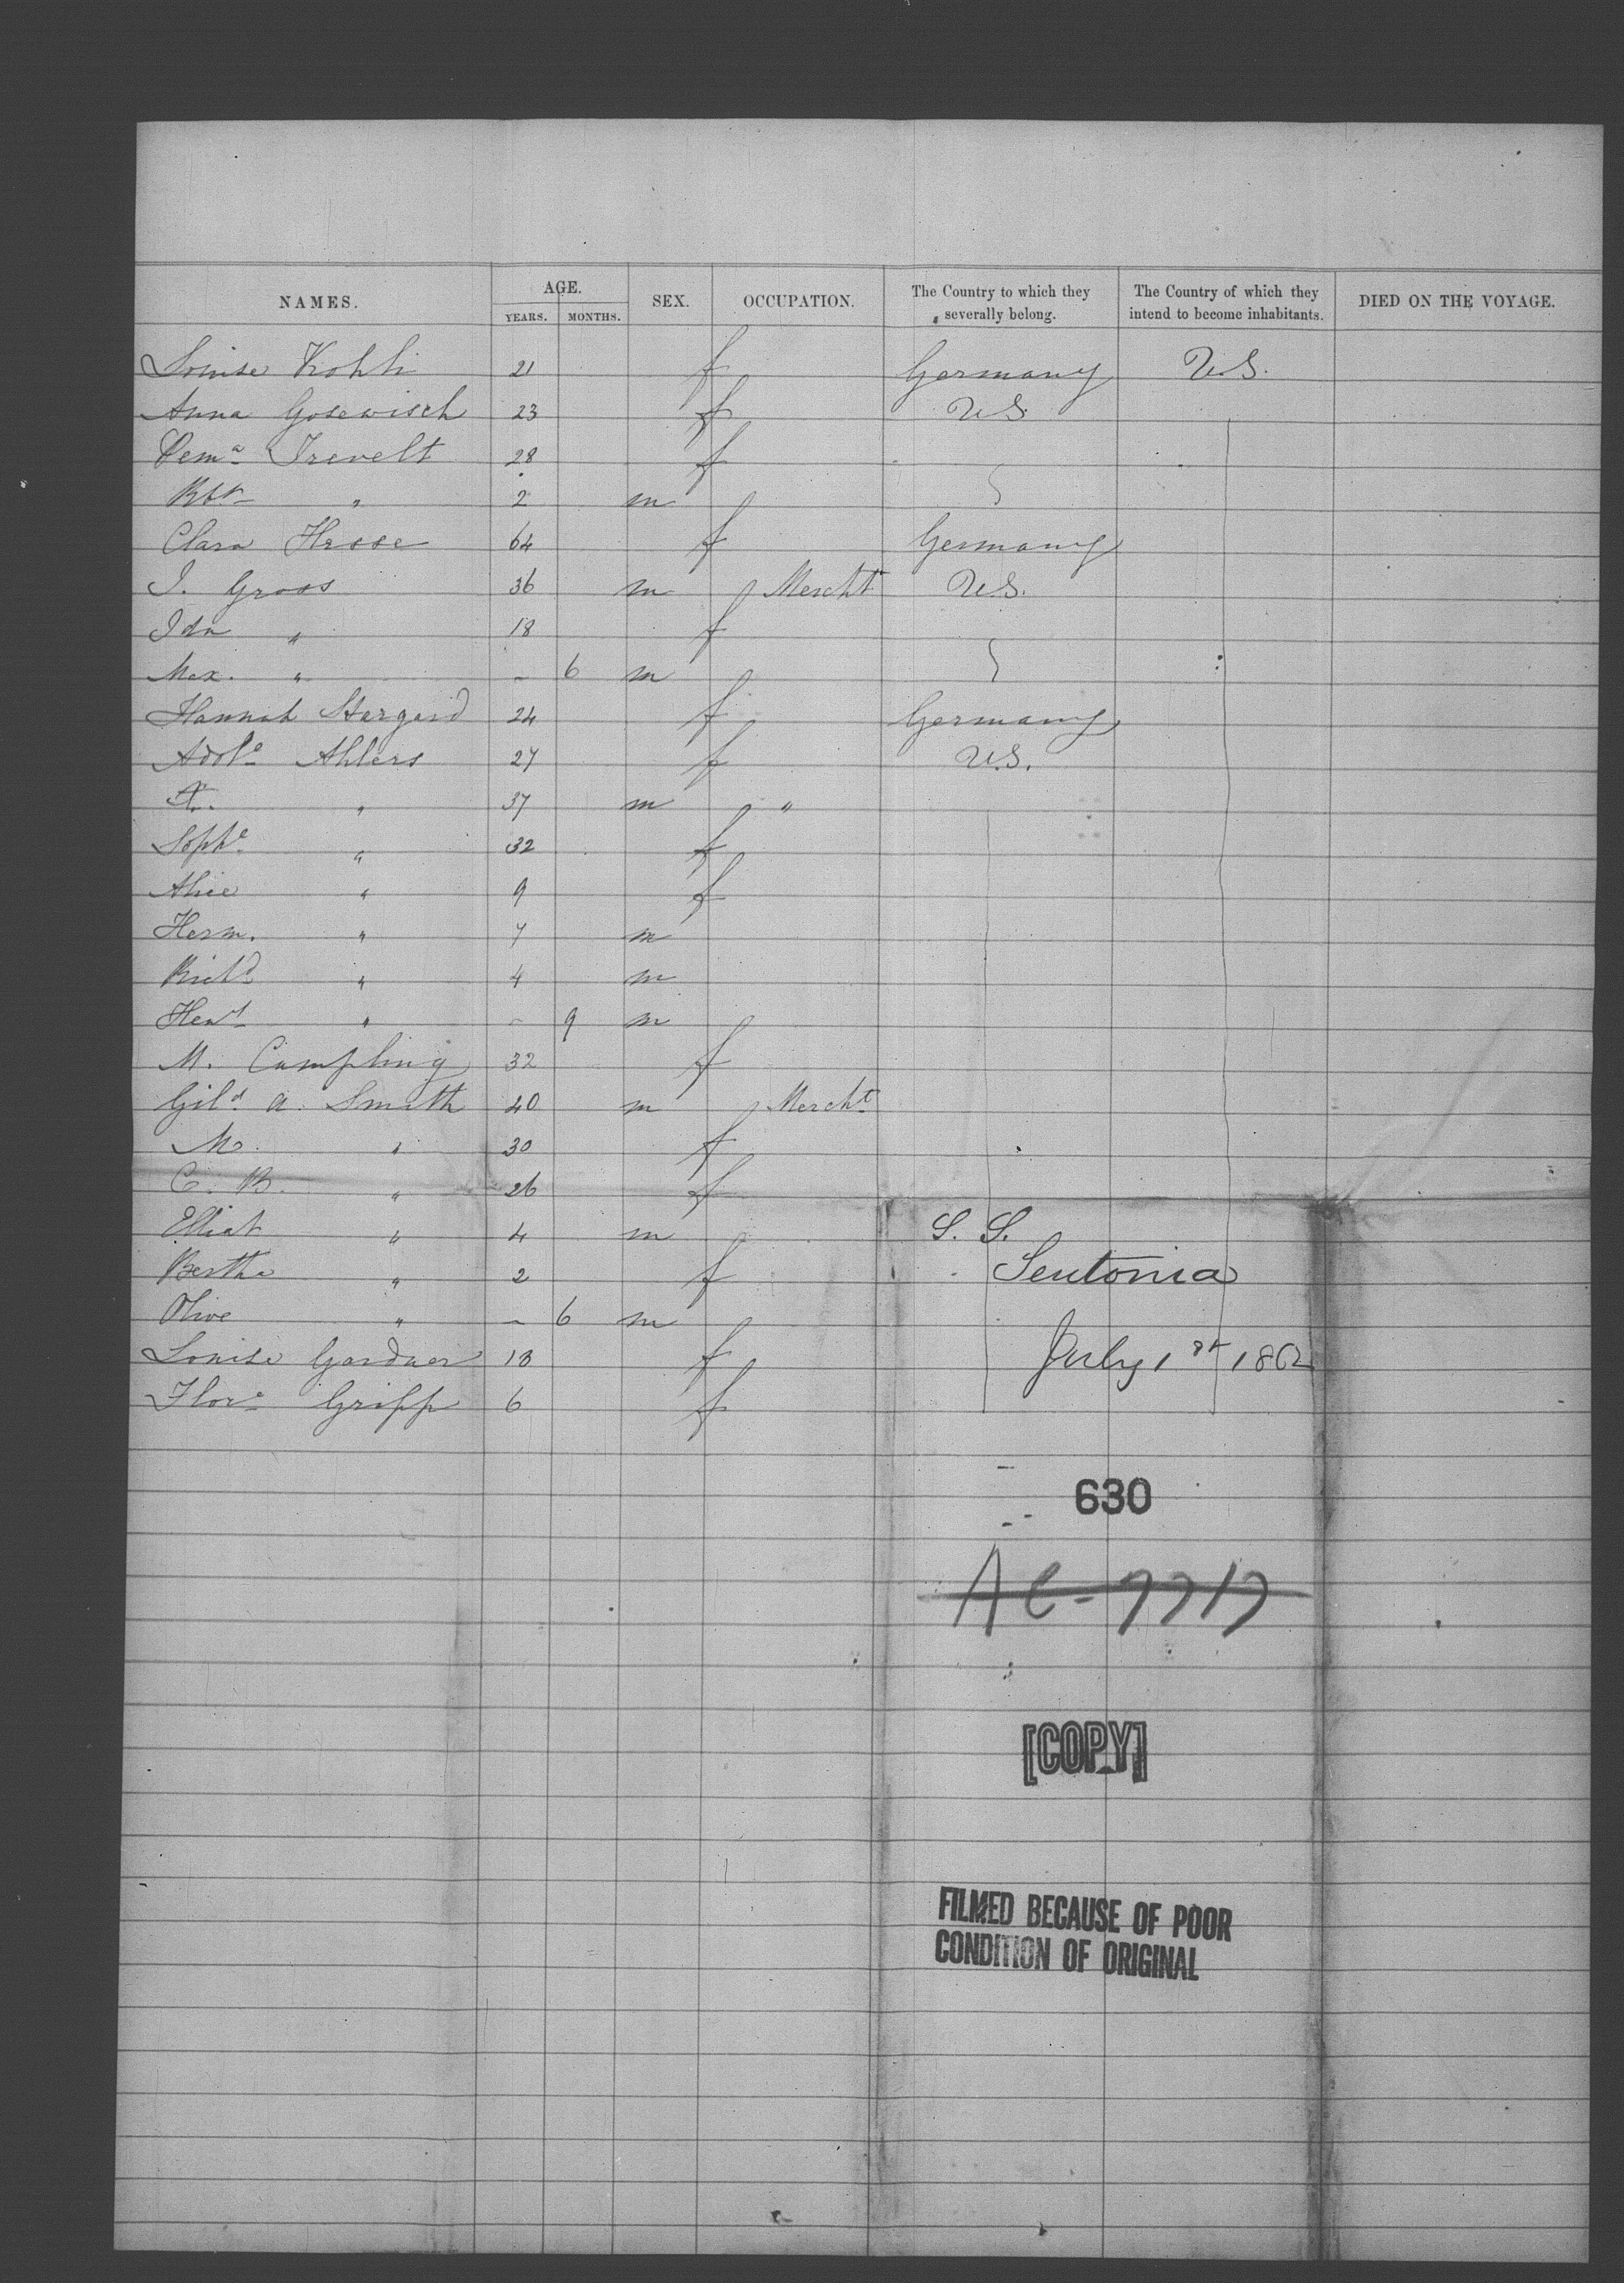 NAMES. AGE. SEX. OCCUPATION. The Country to which they severally belong. The Country of which they intend to become inhabitants. DIED ON THE VOYAGE.
YEARS. MONTHS.
Louise Kohli 21 f Germany U.S.
Anna Gosewisch 23 f U.S.
Trevelt 28 f
" 2 m
Clara Hesse 64 f Germany
I. Gross 36 m Mercht U.S.
Ida " 18 f
Max. " - 6 m
Hannah Stargard 24 f Germany
Adole Ahlers 27 f U.S.
" 37 m "
Sophe " 32 f
Alice " 9 f
Herm. " 7 m
Richd " 4 m
" - 9 m
M. Campling 32 f
Gild A. Smith 40 m Mercht
M. " 30 f
C. B. " 26 f
Elliat " 4 m
Bertha " 2 f
Olive " - 6 m
Louise Gardner 18 f
Flore Gripp 6 f
S. S.
Teutonia
July 1st 1862
630
AC-7717
[COPY]
FILMED BECAUSE OF POOR
CONDITION OF ORIGINAL